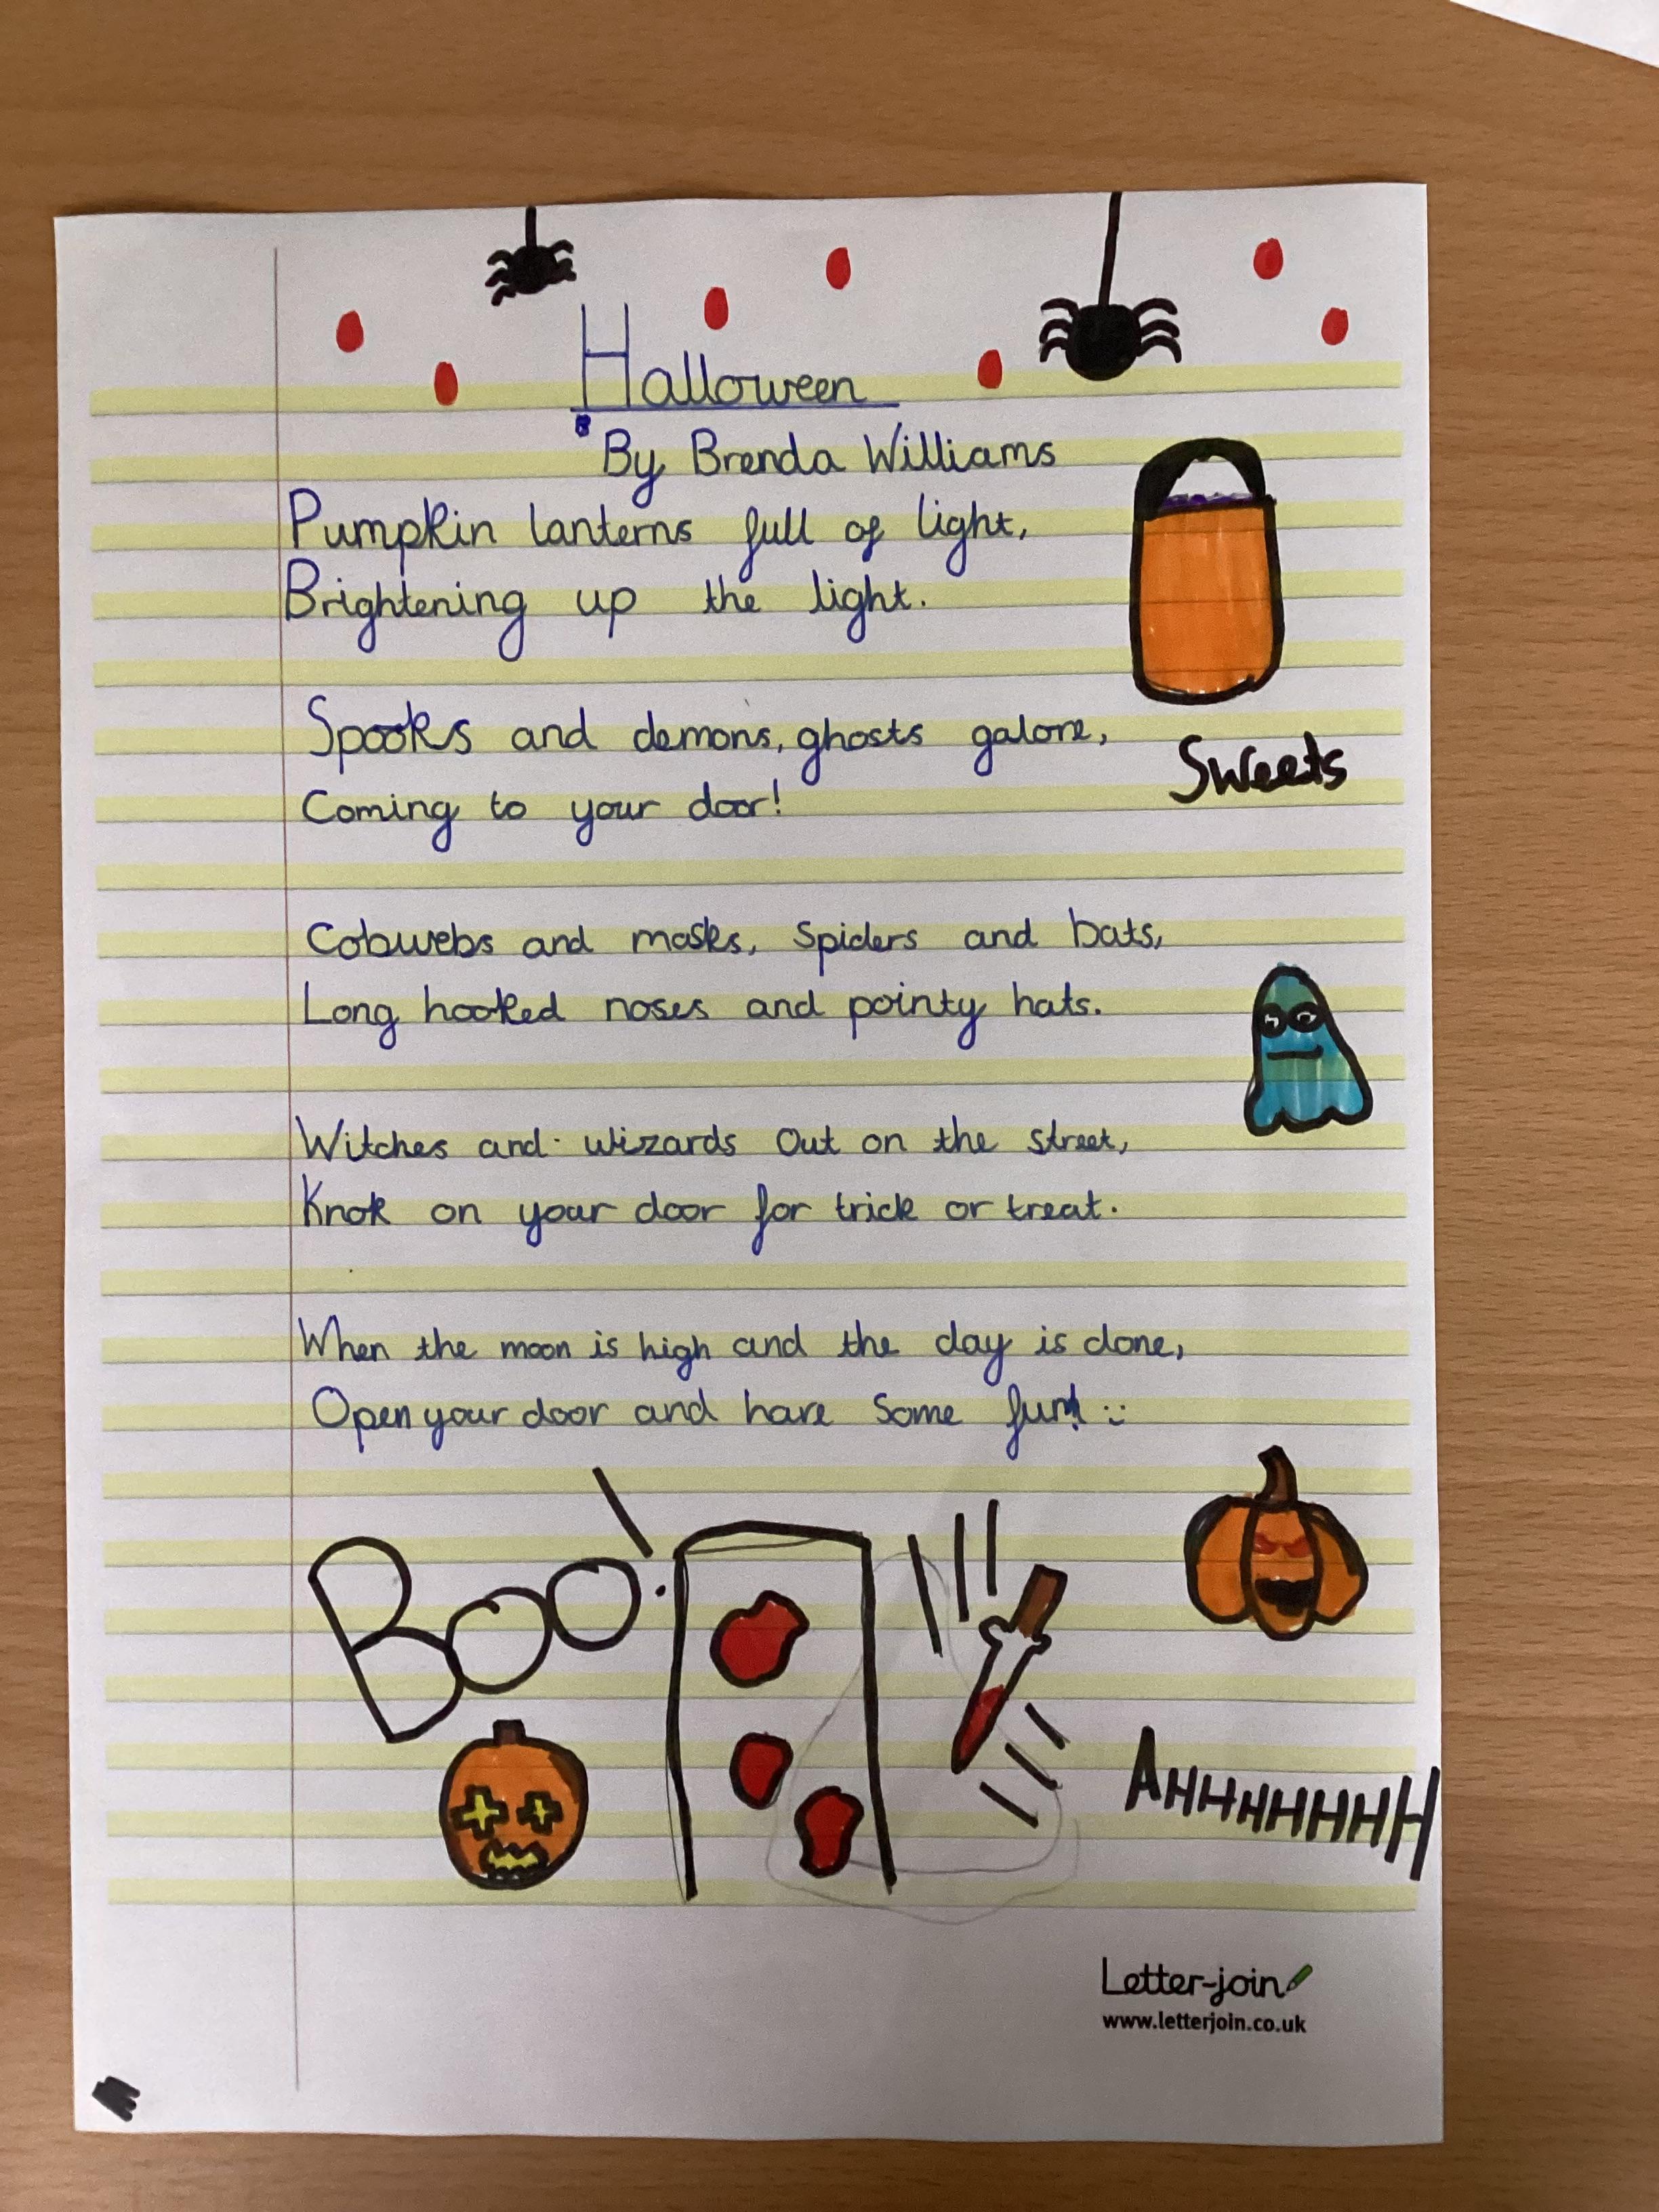 Halloween
By Brenda Williams
Pumpkin lanterns full of light,
Brightening up the light.
Spooks and demons, ghosts galore,
Coming to your door!
Sweets
Cobwebs and masks, Spiders and bats,
Long hooked noses and pointy hats.
Witches and wizards Out on the street,
Knok on your door for trick or treat.
When the moon is high and the day is done,
Open your door and have some fun! :-
Boo!
AHHHHHHHH
Letter-join
www.letterjoin.co.uk